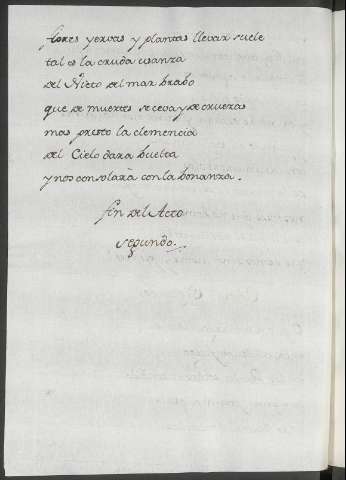 flores yervas y plantas llevar suele
tal es la cruda usanza
del Nieto del mar brabo
que de muertes se ceva y de cruezas
mas presto la clemencia
del Cielo dara buelta
y nos consolará con la bonanza.
fin del Acto
segundo.